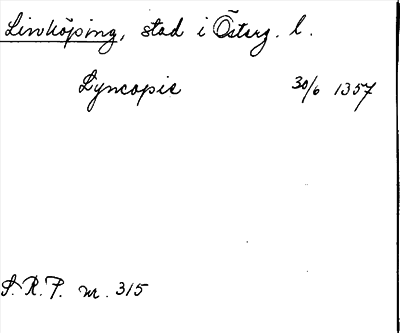 Linköping, stad i Österg. l.
Lyncopie 30/6 1357
S.R.P. nr. 315